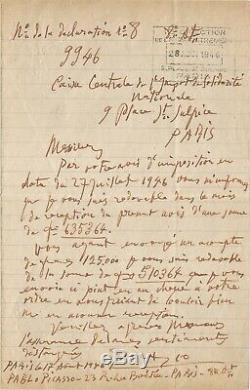 No de la declaration No 8
9946
28 1946
Caisse Centrale de l'Impot de Solidarité
Nationale
9 Place St. Sulpice
PARIS
Messieurs
Par votre avis d'imposition en
date du 27 Juillet 1946 vous m'informez
que je vous suis redevable dans le mois
de reception du present avis d'une somme
de 635364.
Vous ayant envoyé un acompte
de 125000 je vous suis redevable
de la somme de 510364 que je vous
envoie ci joint en un cheque à votre
ordre en vous priant de bouloir bien
m'en accuser reception.
Veuillez agréer Messieurs
l'assurance de mes sentiments
distingués
PARIS le 17 Aout 1946
PABLO PICASSO - 23 Rue La Boëtie - PARIS - 8